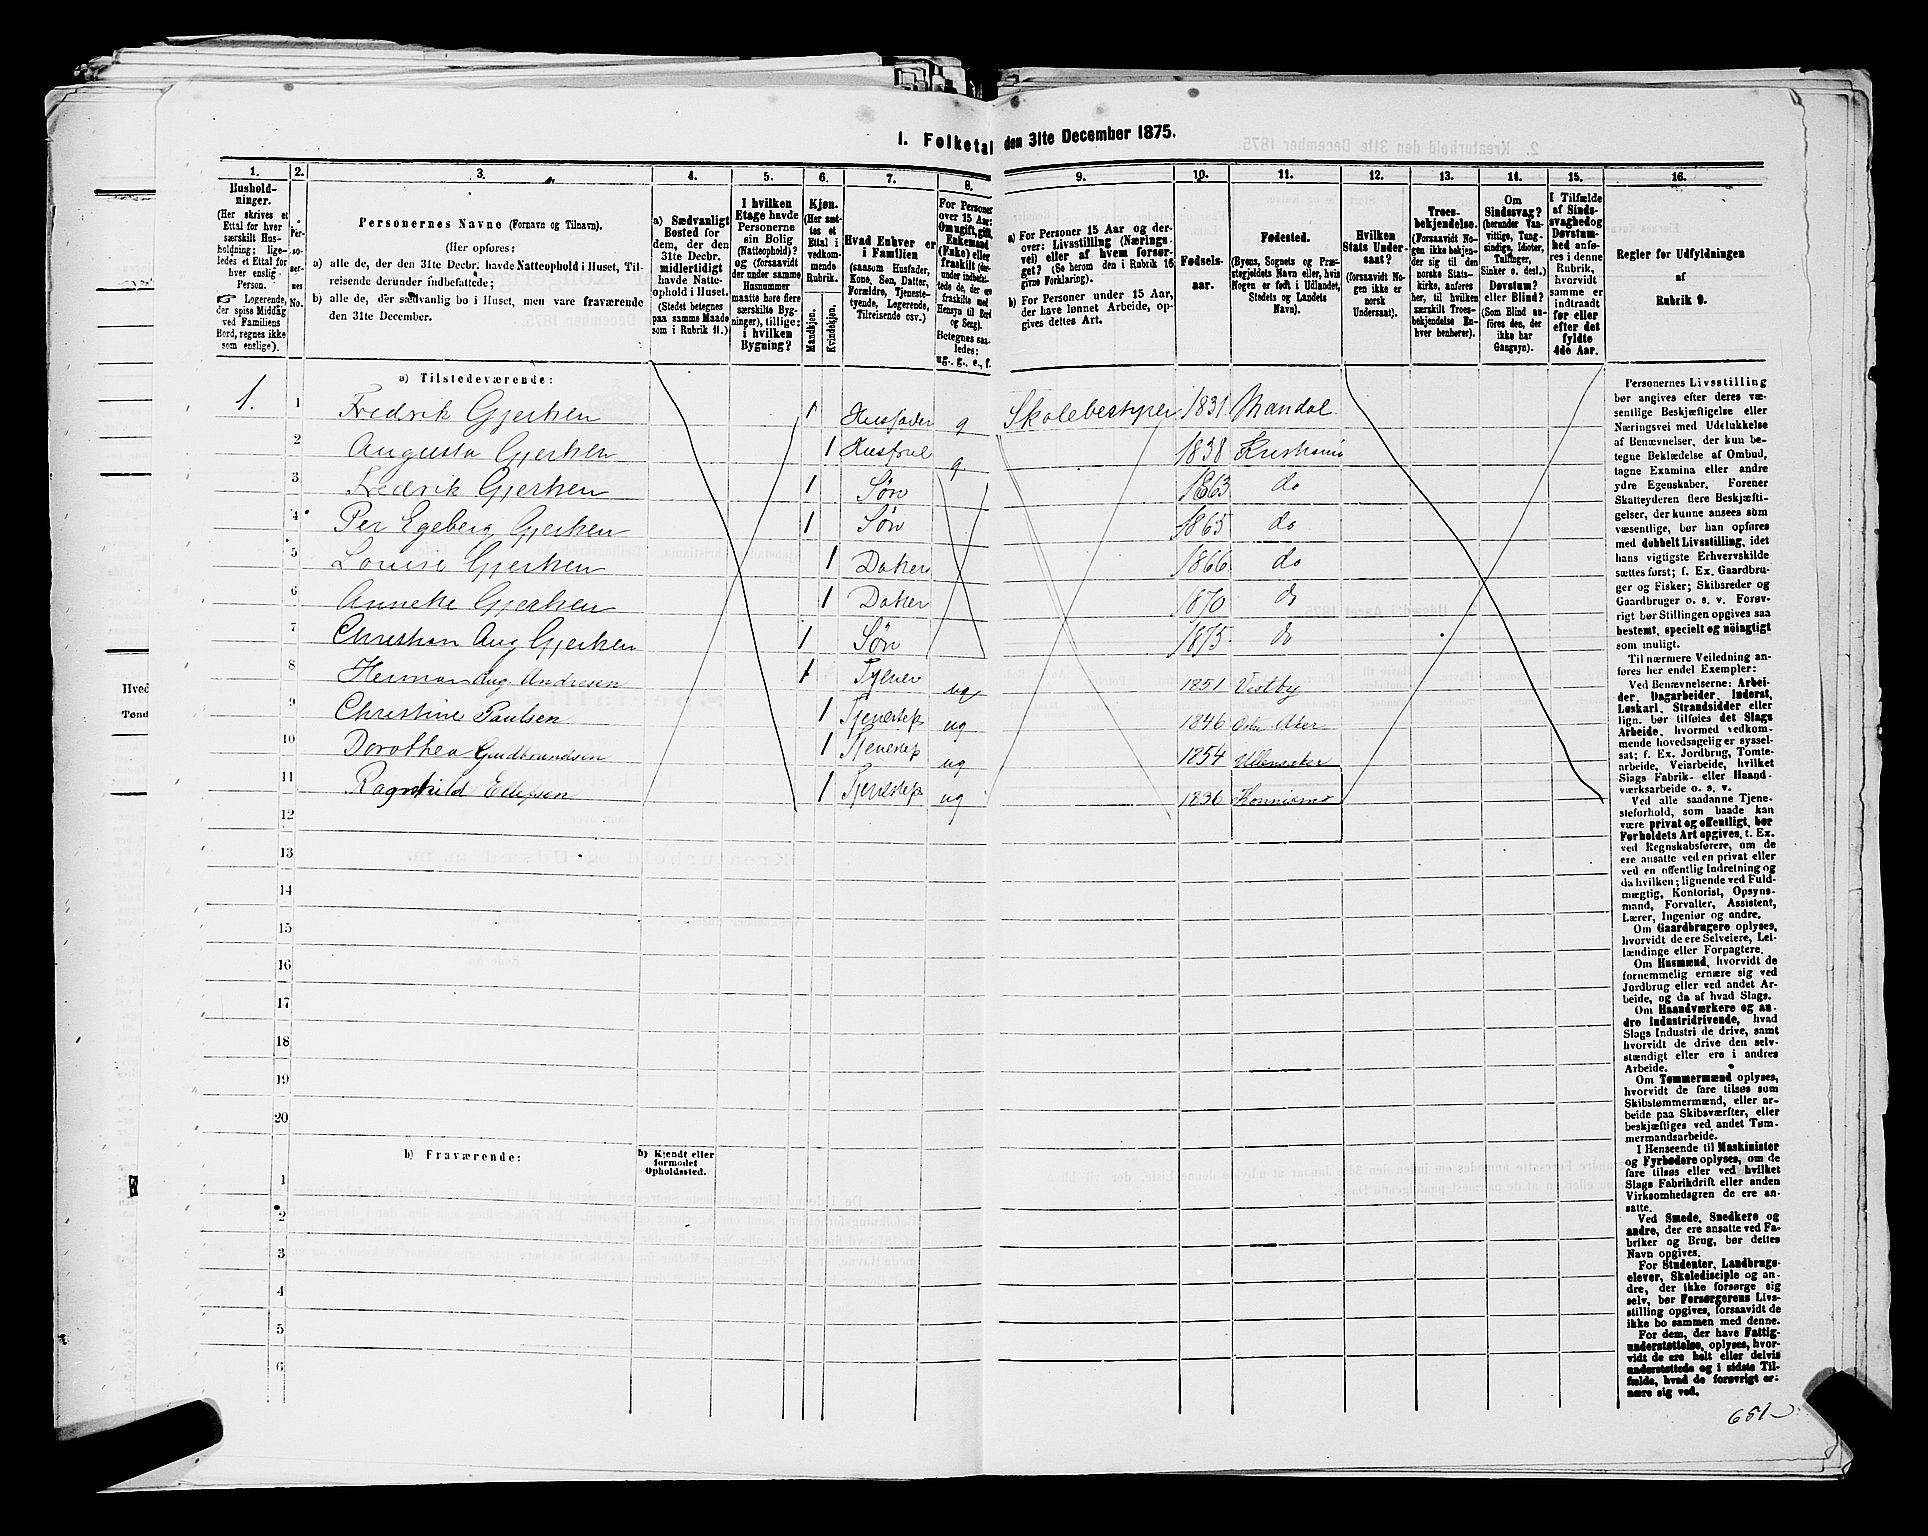 1. Folketal den 31te December 1875.
1. 2. 3. 4. 5. 6. 7. 8. 9. 10. 11. 12. 13. 14. 15. 16.
Hushold-
ninger.
(Her skrives et
Ettal for hver
særskilt Hus-
holdning; lige-
ledes et Ettal for
hver enslig
Person.
Logerende,
der spise Middag
ved Familiens
Bord, regnes ikke
som enslige).
Per-
so-
ner-
nes
No.
Personernes Navne (Fornavn og Tilnavn).
(Her opføres:
a) alle de, der den 31te Decbr. havde Natteophold i Huset, Til-
reisende derunder indbefattede;
b) alle de, der sædvanlig bo i Huset, men vare fraværende
den 31te December.
a) Sædvanligt
Bosted for
dem, der den
31te Decbr.
midlertidigt
havde Natte-
ophold i Huset.
(Stedet betegnes
paa samme Maade
som i Rubrik 11.)
I hvilken
Etage havde
Personerne
sin Bolig
(Natteophold)?
og (forsaavidt
der under samme
Husnummer
maatte høre flere
særskilte Byg-
ninger), tillige:
i hvilken
Bygning?
Kjøn.
(Her sæt-
tes et
Ettal i
vedkom-
mende
Rubrik.
Mandkjøn.
Kvindekjøn.
Hvad Enhver er
i Familien
(saasom Husfader,
Kone, Søn, Datter,
Forældre, Tjeneste-
tyende, Logerende,
Tilreisende osv.)
For Personer
over 15 Aar:
Om ugift, gift,
Enkemand
(Enke) eller
fraskilt
Betegnes saa-
ledes:
ug., g., e., f.
a) For Personer 15 Aar og der-
over: Livsstilling (Nærings-
vei) eller af hvem forsør-
get? (Se herom den i Rubrik 16
givne Forklaring).
b) For Personer under 15 Aar,
der have lønnet Arbeide, op-
gives dettes Art.
Fødsels-
aar.
Fødested.
(Byens, Sognets og Præ-
stegjeldets Navn eller, hvis
Nogen er født i Udlandet,
Stedets og Landets
Navn).
Hvilken
Stats Under-
saat?
(forsaavidt No-
gen ikke er
norsk
Undersaat).
Troes-
bekjendelse.
(Forsaavidt No-
gen ikke bekjen-
der sig til den
norske Stats-
kirke, anføres
her, til hvilken
særskilt Troes-
bekjendelse En-
hver henhører).
Om
Sindssvag?
(herunder Van-
vittige, Tung-
sindige, Idioter,
Tullinger,
Sinker o. desl.)
Døvstum?
eller Blind?
(Som Blind an-
føres den, der
ikke har
Gangsyn).
I Tilfælde
af Sinds-
svaghed og
Døvstum-
hed anfø-
res i denne
Rubrik,
hvorvidt
samme er
indtraadt
før eller
efter det
fyldte
4de Aar.
Regler for Udfyldningen
af
Rubrik 9.
a) Tilstedeværende:
1. 1 Fredrik Gjerken 1 Husfader g Skolebestyrer 1831 Mandal
2 Augusta Gjerken 1 Husfrue g 1838
3 Fredrik Gjerken 1 Søn 1863 do
4 Per Egeberg Gjerken 1 Søn 1865 do
5 Louise Gjerken 1 Datter 1866 do
6 Anneke Gjerken 1 Datter 1870 do
7 Christian Aug Gjerken 1 Søn 1875 do
8 Herman Aug Andresen 1 Tjener ug 1851 Vestby
9 Christine Paulsen 1 ug 1846
10 Dorothea Gudbrandsen 1 ug 1854 Ullensaker
11 Ragnhild Ellefsen 1 ug 1836
12
13
14
15
16
17
18
19
20
b) Fraværende:
b) Kjendt eller
formodet
Opholdssted.
1
2
3
4
5
6
Personernes Livsstilling
bør angives efter deres væ-
sentlige Beskjæftigelse eller
Næringsvei med Udelukkelse
af Benævnelser, der kun be-
tegne Beklædelse af Ombud,
tagne Examina eller andre
ydre Egenskaber. Forener
Skatteyderen flere Beskjæfti-
gelser, der kunne ansees som
væsentlige, bør han opføres
med dobbelt Livsstilling, idet
hans vigtigste Erhvervskilde
sættes først; f. Ex. Gaardbru-
ger og Fisker; Skibsreder og
Gaardbruger o. s. v. Forøv-
rigt bør Stillingen opgives saa
bestemt, specielt og nöiagtigt
som muligt.
Til nærmere Veiledning an-
føres her endel Exempler:
Ved Benævnelserne: Arbei-
der, Dagarbeider, Inderst,
Løskarl, Strandsidder eller
lign. bør tilføies det Slags
Arbeide, hvormed vedkom-
mende hovedsagelig er syssel-
sat; f. Ex. Jordbrug, Tomte-
arbeide, Veiarbeide, hvilket
Slags Fabrik- eller Haand-
værksarbeide o. s. v.
Ved alle saadanne Tjene-
steforhold, som baade kan
være privat og offentligt, bør
Forholdets Art opgives, t. Ex.
ved Regnskabsførere, om de
ere ansatte ved en privat eller
ved en offentlig Indretning og
da hvilken; lignende ved Fuld-
mægtig, Kontorist, Opsyns-
mand, Forvalter, Assistent,
Lærer, Ingeniør og andre.
Om Gaardbrugere oplyses,
hvorvidt de ere Selveiere, Lei-
lændinge eller Forpagtere.
Om Husmænd, hvorvidt de
fornemmelig ernære sig ved
Jordbrug eller ved andet Ar-
beide, og da af hvad Slags.
Om Haandværkere og an-
dre Industridrivende, hvad
Slags Industri de drive, samt
hvorvidt de drive den selv-
stændigt eller ere i andres
Arbeide.
Om Tømmermænd oplyses,
hvorvidt de fare tilsøs som
Skibstømmermænd, eller ar-
beide paa Skibsværfter, eller
beskjæftiges ved andet Tøm-
mermandsarbeide.
I Henseende til Maskinister
og Fyrbødere oplyses, om de
fare tilsøs eller ved hvilket
Slags Fabrikdrift eller anden
Virksomhedsgren de ere an-
satte.
Ved Smede, Snedkere og
andre, der ere ansatte ved Fa-
briker og Brug, bør dettes
Navn opgives.
For Studenter, Landbrugs-
elever, Skoledisciple og an-
dre, der ikke forsørge sig
selv, bør Forsørgerens Livs-
stilling opgives, forsaavidt de
ikke bo sammen med denne.
For dem, der have Fattig-
understøttelse, oplyses, hvor-
vidt de ere helt eller delvis
understøttede og i sidste Til-
fælde, hvad de forøvrigt er-
nære sig ved.
Hved
Tønd